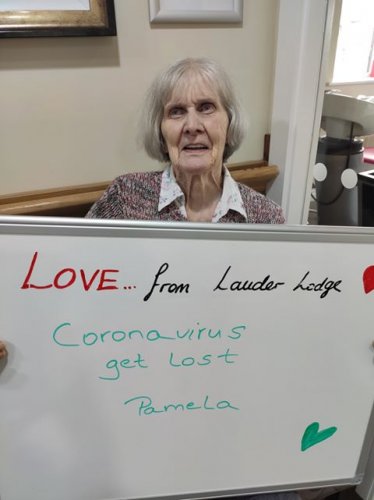 LOVE... from Lauder Lodge
Coronavirus
get lost
Pamela